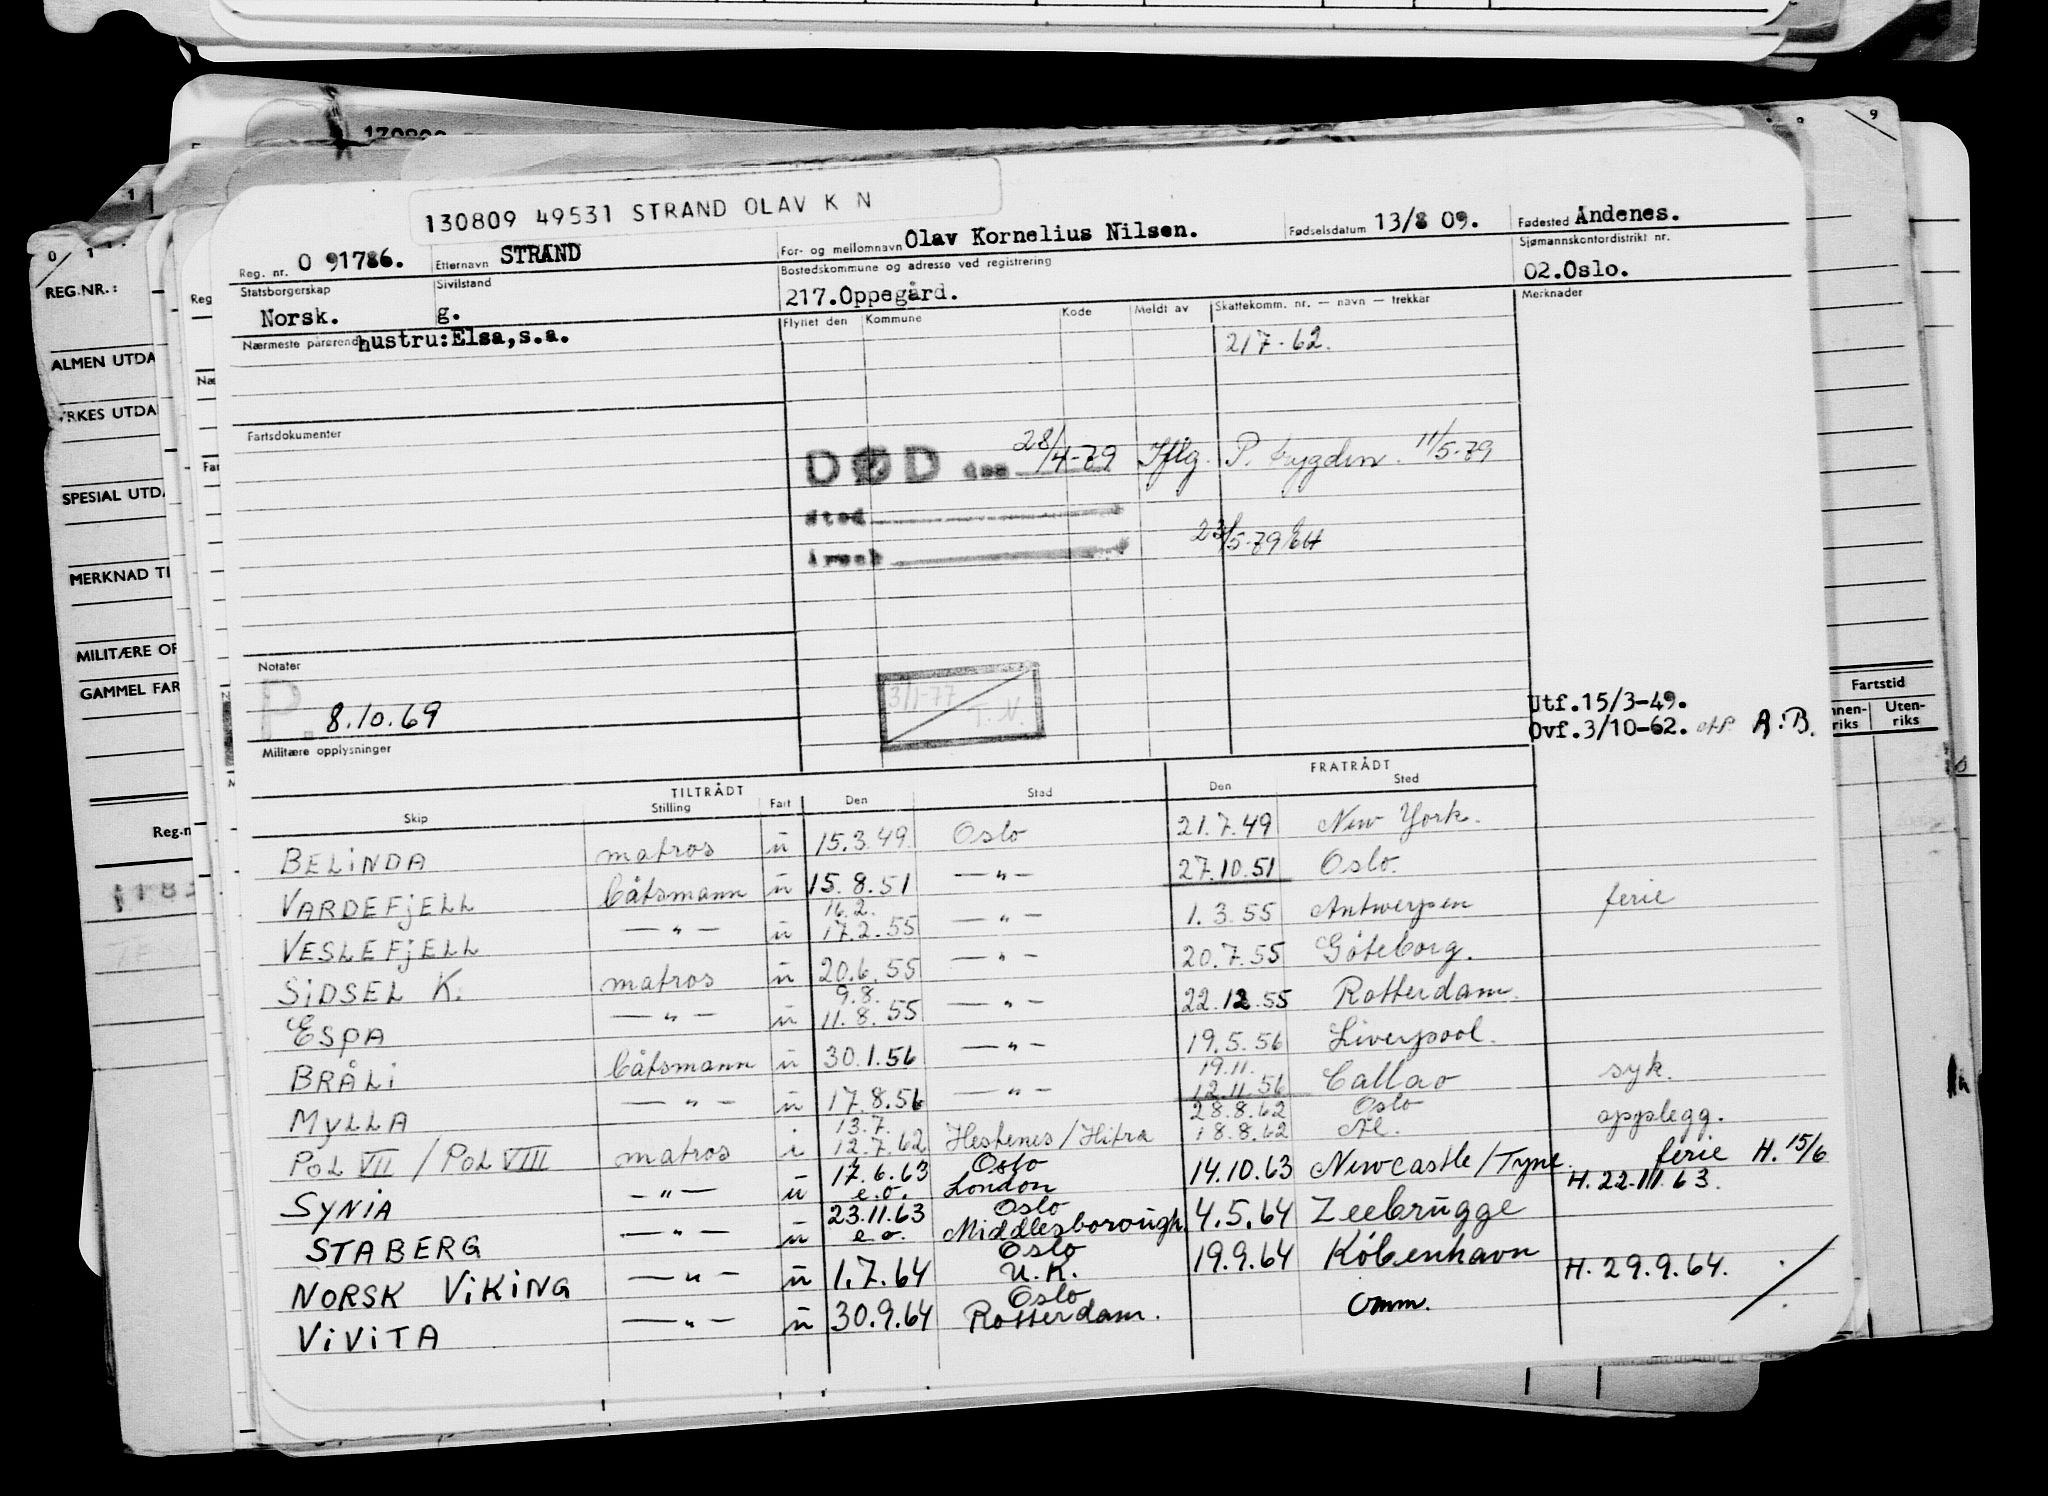 130809 49531 STRAND OLAV K N
Reg. nr. O 91786. Etternavn STRAND For- og mellomnavn Olav Kornelius Nilsen. Fødselsdatum 13/8 09. Fødested Andenes.
Statsborgerskap Norsk. Sivilstand g. Bostedskommune og adresse ved registrering 217.Oppegård. Sjømannskontordistrikt nr. 02.Oslo.
Nærmeste pårørende hustru:Elsa,s.a. Flyttet den Kommune Kode Meldt av Skattekomm. nr. — navn — trekkår Merknader
217-62.
Fartsdokumenter
DØD den 28/4-79 Iflg. P. trygden. 11/5-79
Sted
Årsak 23/5-79
Notater
P. 8.10.69 3/1-77 T.N.
Utf.15/3-49.
Ovf.3/10-62. A.B.
Militære opplysninger
TILTRÅDT FRATRÅDT
Skip Stilling Fart Den Sted Den Sted
BELINDA matros u 15.3.49 Oslo 21.7.49 New York.
VARDEFJELL båtsmann u 15.8.51 —"— 27.10.51 Oslo.
VESLEFJELL —"— u 16.2. 17.2.55 —"— 1.3.55 Antwerpen ferie
SIDSEL K. matros u 20.6.55 —"— 20.7.55 Göteborg.
ESPA —"— u 9.8. 11.8.55 —"— 22.12.55 Rotterdam.
BRÅLI båtsmann u 30.1.56 —"— 19.5.56 Liverpool.
MYLLA —"— u 17.8.56 —"— 19.11. 12.11.56 Callao syk.
POL VII / POL VIII matros i 13.7. 12.7.62 Hestenes/Hitra 28.8.62 18.8.62 Oslo Ål. opplegg.
SYNIA —"— u 17.6.63 e.o. Oslo London 14.10.63 Newcastle/Tyne. ferie H. 15/6 H.22.III.63.
STABERG —"— u 23.11.63 e.o. Oslo Middlesborough. 4.5.64 Zeebrügge
NORSK VIKING —"— u 1.7.64 Oslo U.K. 19.9.64 København H. 29.9.64.
VIVITA —"— u 30.9.64 Oslo Rotterdam. Omm.
REG.NR.:
ALMEN UTDA
YRKES UTDA
SPESIAL UTD
MERKNAD TI
MILITÆRE OP
GAMMEL FAR
Reg.n
Fartstid
Innen-riks Uten-riks